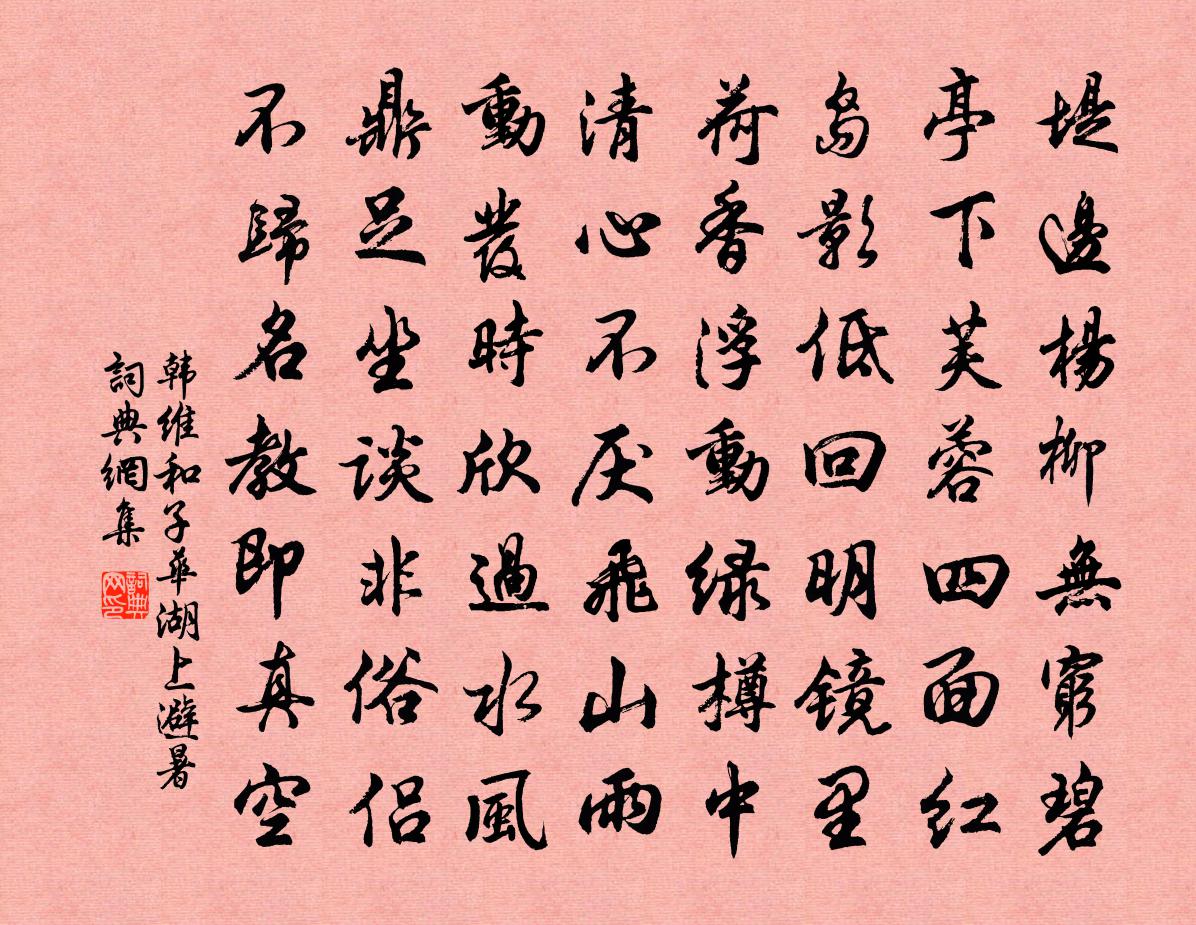 堤邊楊柳無窮碧
亭下芙蓉四面紅
島影低回明镜里
荷香浮動緑樽中
清心不厌飛山雨
動發時欣過水風
鼎足坐談非俗侣
不歸名教即真空
韩維和子華湖上避暑
詞典網集
詞典网印